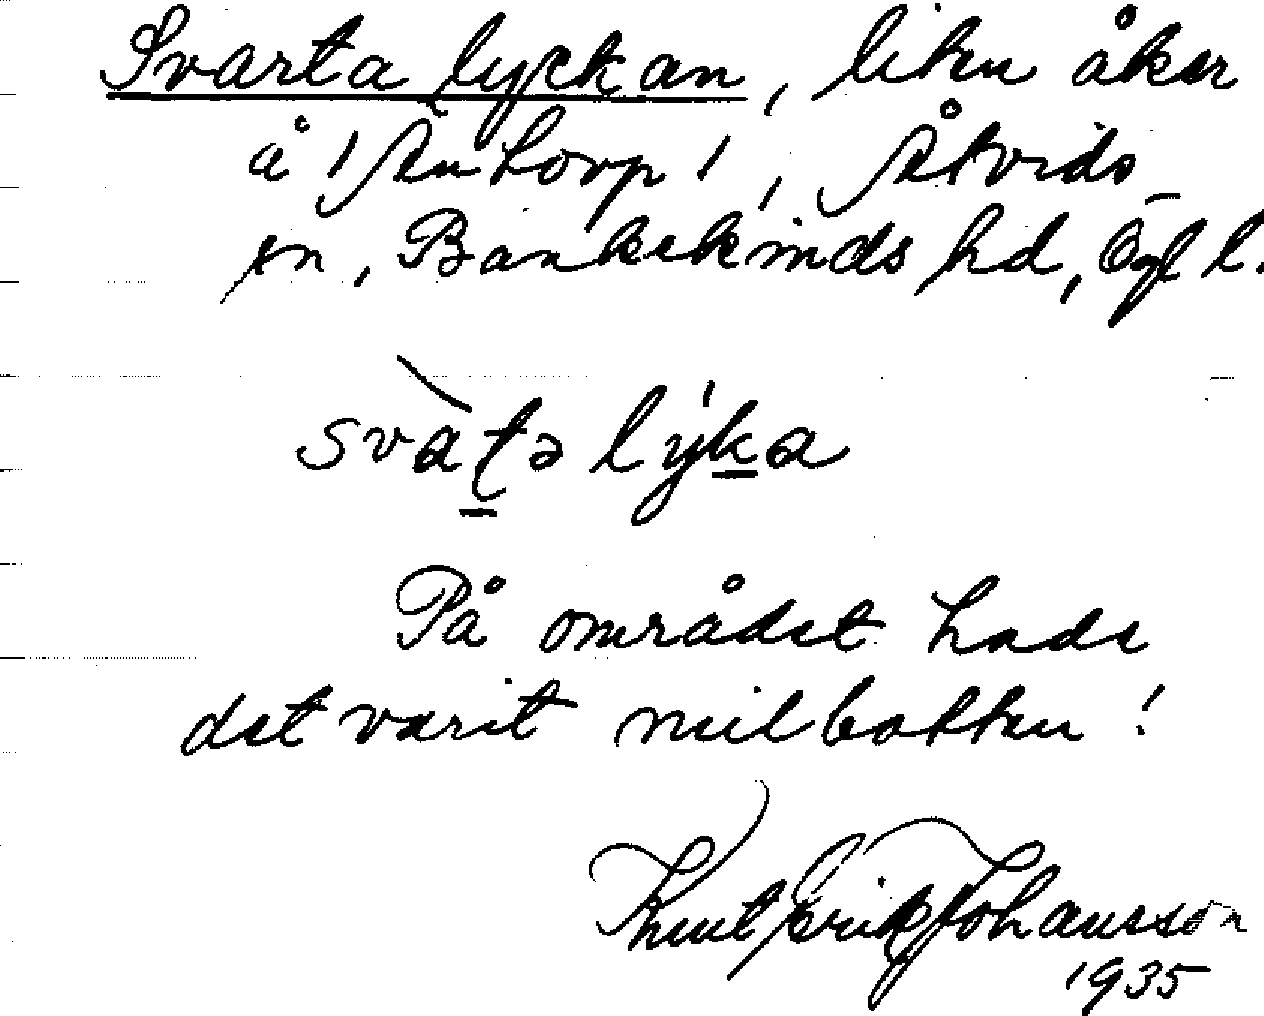 Svarta lyckan, liten åker
å 'Stentorp', Åtvids
sn, Bankekinds hd, Ögl l.
svàt̠ə lýk̠a
På området hade
det varit milbotten!
Knut Erik Johansson
1935